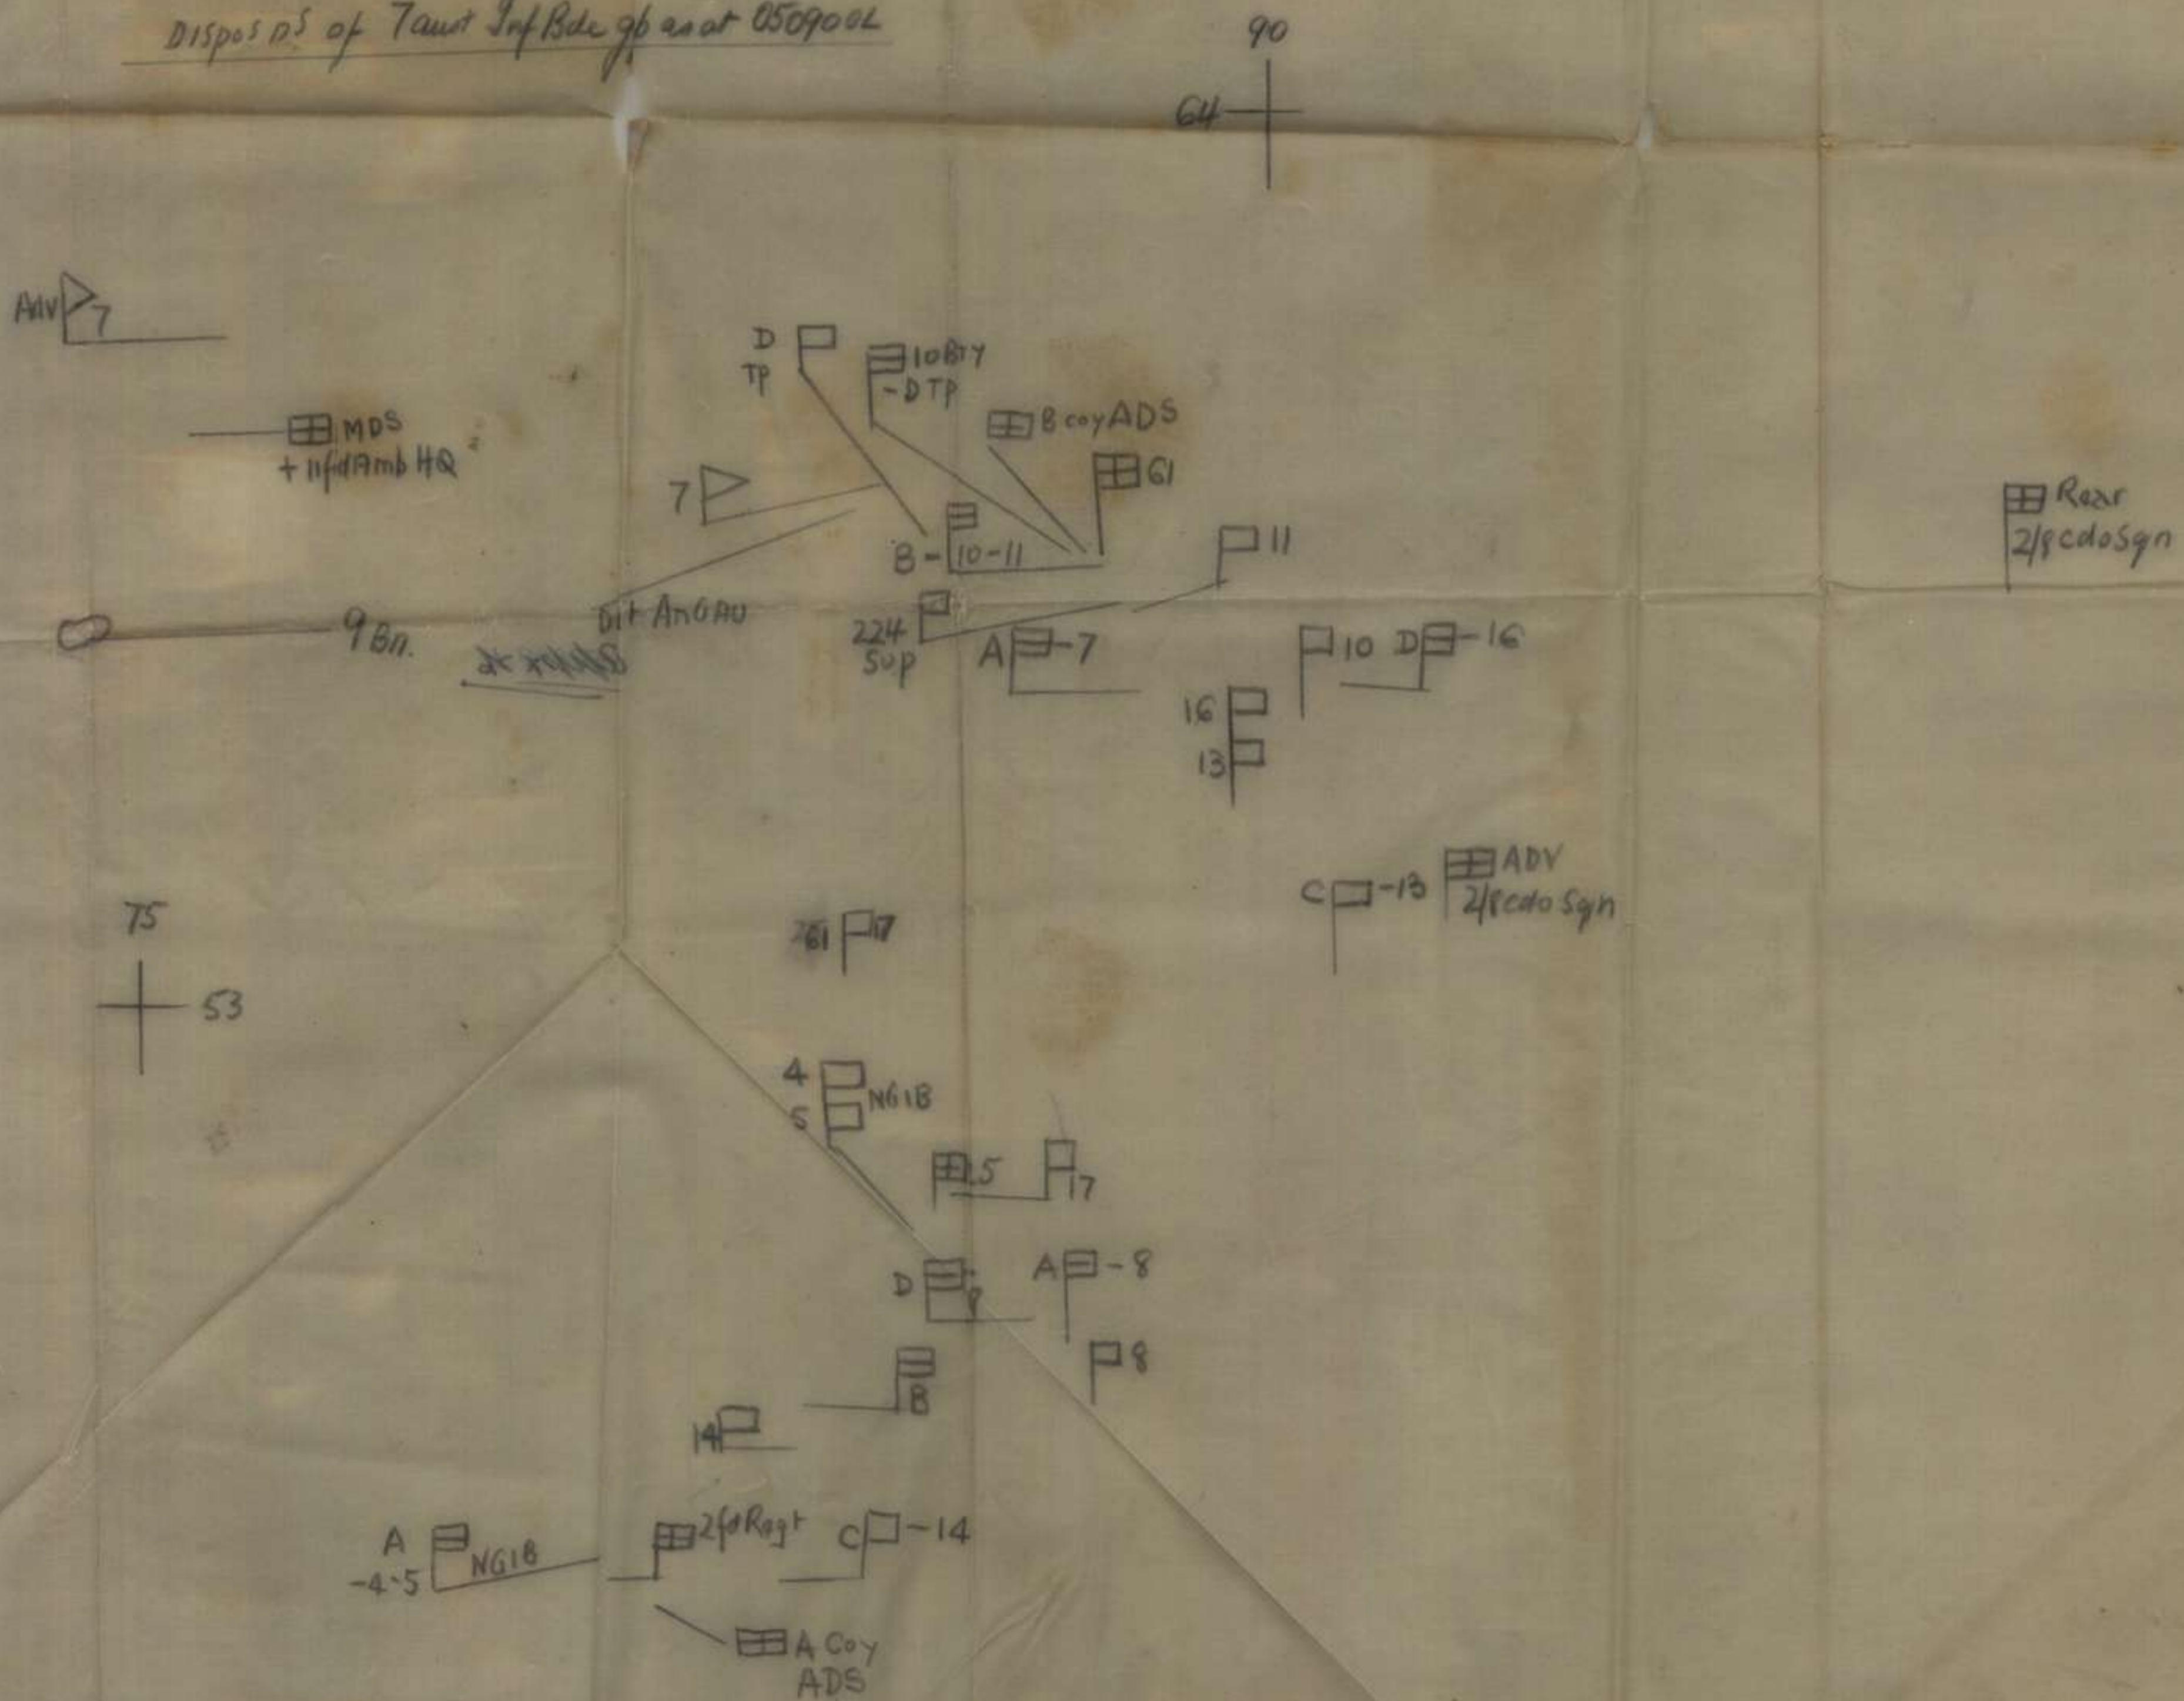 Dispos ns of 7 aust Inf Bde gp as at 050900L
90
64
Adv 7
D
TP
10 BTY
- D TP
MDS
+ 11 fd Amb HQ
B coy ADS
61
7
Rear
2/8 cdo Sqn
B - 10-11
11
Det AnGAU
9 Bn.
224
Sup
A -7
10
D -16
16
13
ADV
2/8 cdo Sqn
C -13
75
53
61 17
4
5
NGIB
25
17
D
A -8
8
B
14
A
-4-5
NGIB
2 fd Regt
C -14
A Coy
ADS